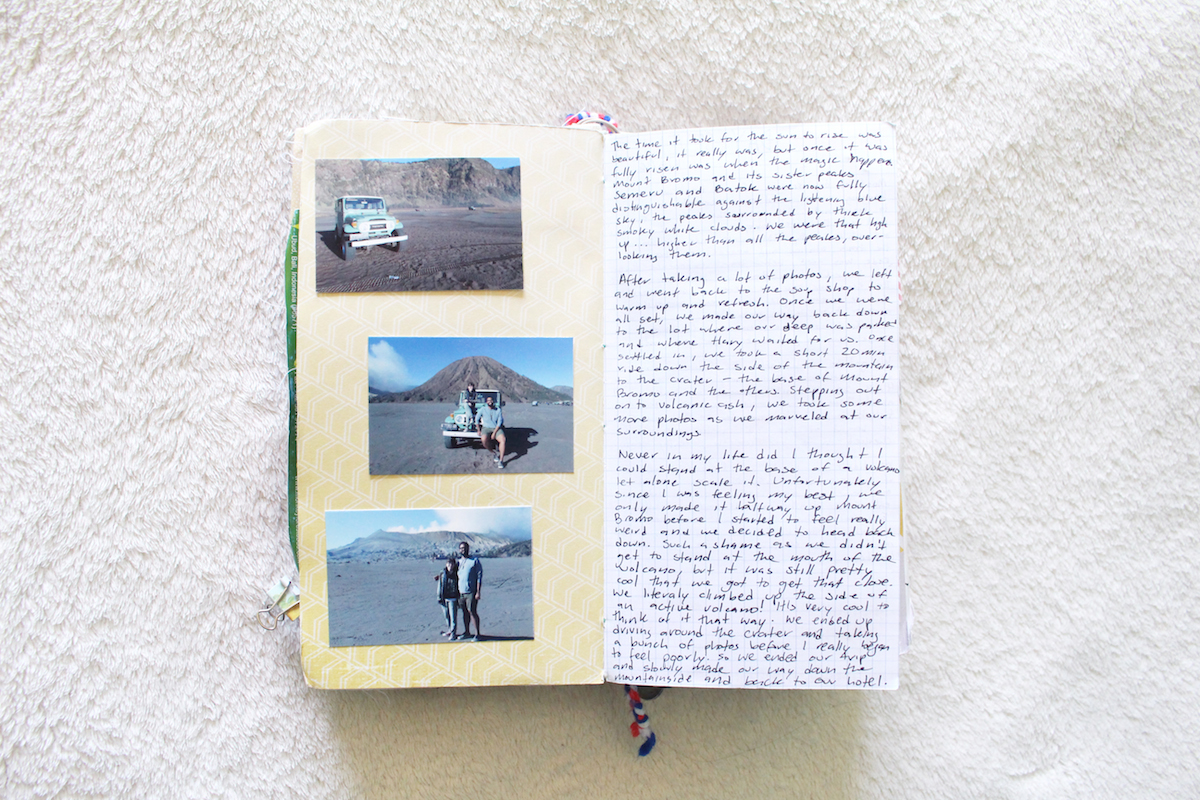 Ubud, Bali, Indonesia
The time it took for the sun to rise was
beautiful, it really was, but once it was
fully risen was when the magic happens
Mount Bromo and its sister peaks
Semeru and Batok were now fully
distinguishable against the lightening blue
sky, the peaks surrounded by thick
smoky white clouds. We were that high
up... higher than all the peaks, over-
looking them.
After taking a lot of photos, we left
and went back to the soup shop to
warm up and refresh. Once we were
all set, we made our way back down
to the lot where our jeep was parked
and where Hary waited for us. Once
settled in, we took a short 20 min
ride down the side of the mountain
to the crater - the base of Mount
Bromo and the others. Stepping out
onto volcanic ash, we took some
more photos as we marveled at our
surroundings.
Never in my life did I thought I
could stand at the base of a volcano
let alone scale it. Unfortunately
since I was feeling my best, we
only made it halfway up Mount
Bromo before I started to feel really
weird and we decided to head back
down. Such a shame as we didn't
get to stand at the mouth of the
volcano, but it was still pretty
cool that we got to get that close.
We literaly climbed up the side of
an active volcano! It's very cool to
think of it that way. We ended up
driving around the crater and taking
a bunch of photos before I really began
to feel poorly. So we ended our trip
and slowly made our way down the
mountainside and back to our hotel.